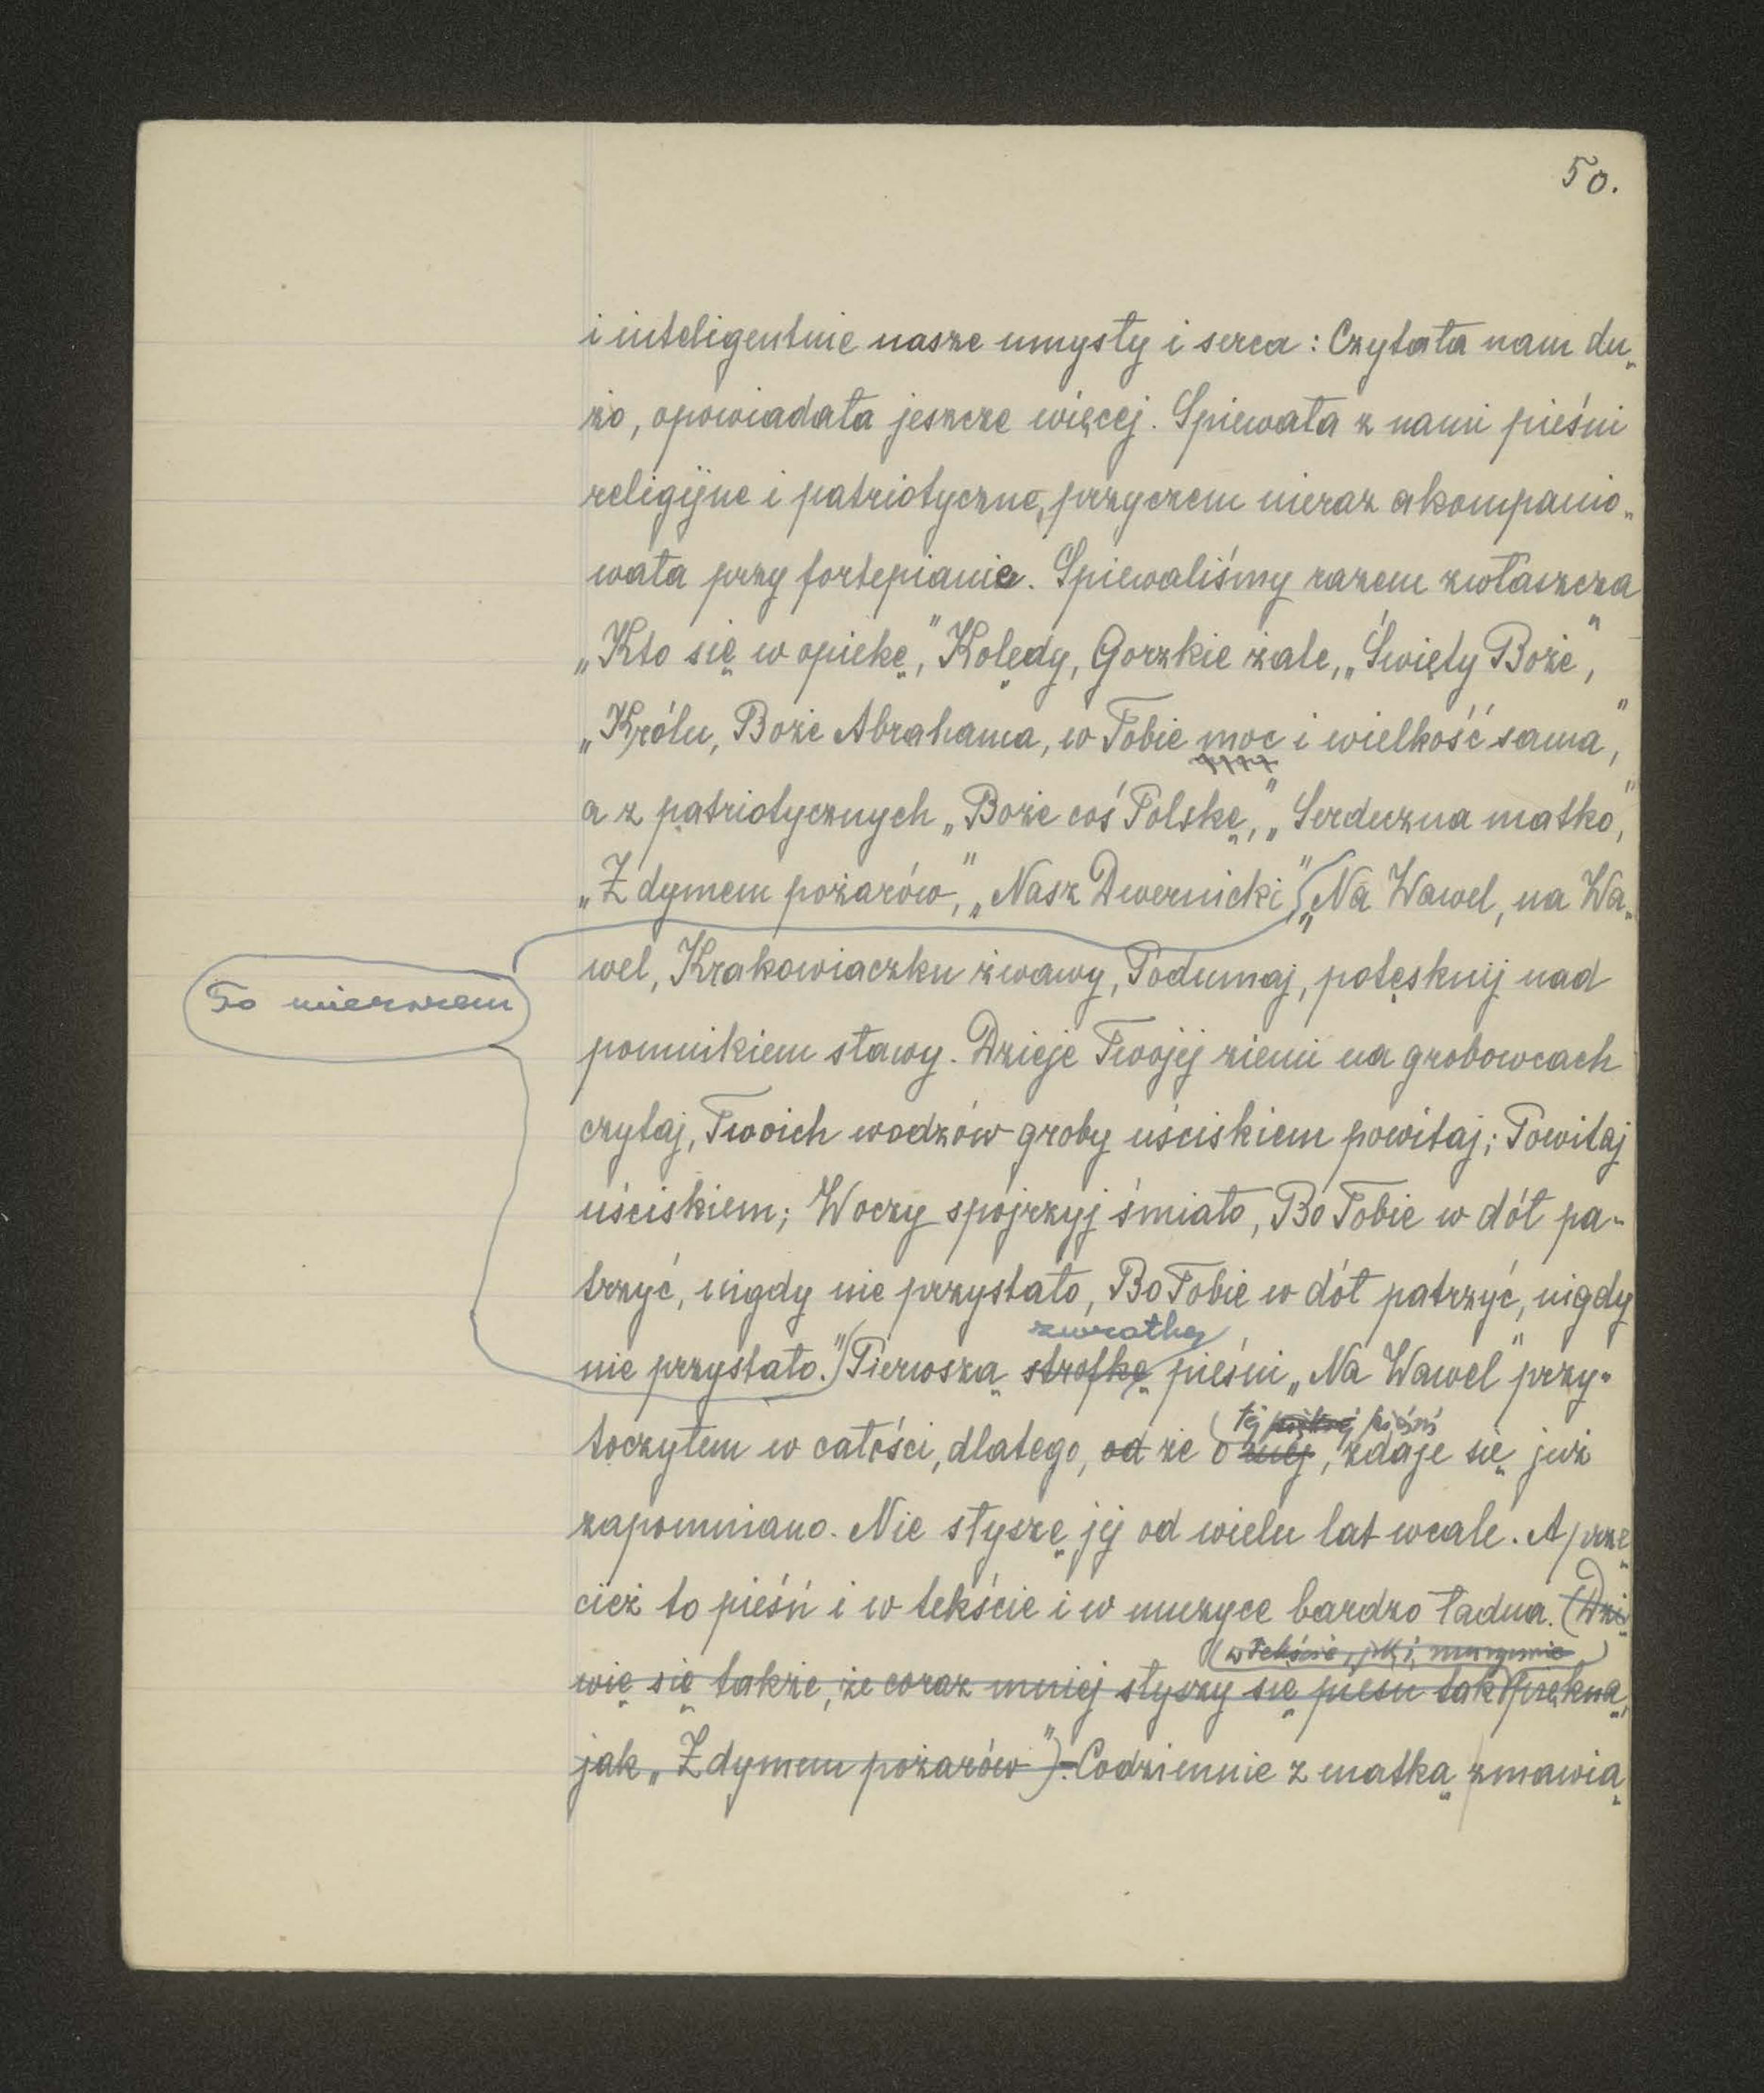 50.
i inteligentnie nasze umysły i serca: Czytała nam du„
żo, opowiadała jeszcze więcej. Spiewała z nami pieśni
religijne i patriotyczne, przyczem nieraz akompanio„
wała przy fortepianie. Spiewaliśmy razem zwłaszcza
„Kto się w opiekę," Kolędy, Gorzkie żale, „Święty Boże",
„Królu, Boże Abrahama, w Tobie moc i wielkość sama,"
a z patriotycznych „Boże coś Polskę," „Serdeczna matko,"
„Z dymem pożarów," „Nasz Dwernicki", („Na Wawel, na Wa„
wel, Krakowiaczku żwawy, Podumaj, potęsknij nad
To wierszem
pomnikiem sławy. Dzieje Twojej ziemi na grobowcach
czytaj, Twoich wodzów groby uściskiem powitaj; Powitaj
uściskiem; W oczy spojrzyj śmiało, Bo Tobie w dół pa-
trzyć, nigdy nie przystało, Bo Tobie w dół patrzyć, nigdy
zwrotkę
nie przystało.") Pierwszą strofkę pieśni „Na Wawel" przy-
tej pięknej pieśni
toczyłem w całości, dlatego, od że o niej, zdaje się już
zapomniano. Nie słyszę jej od wielu lat wcale. A prze„
cież to pieśń i w tekście i w muzyce bardzo ładna. (Dzi„
w tekście, jak i muzycznie
wię się także, że coraz mniej słyszy się pieśń tak piękną,
jak „Z dymem pożarów"). - Codziennie z matką zmawia„